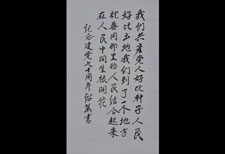 我们共产党人好比种子人民
好比土地我们到了一个地方
就要同那里的人民结合起来
在人民中间生根开花
纪念建党九十周年